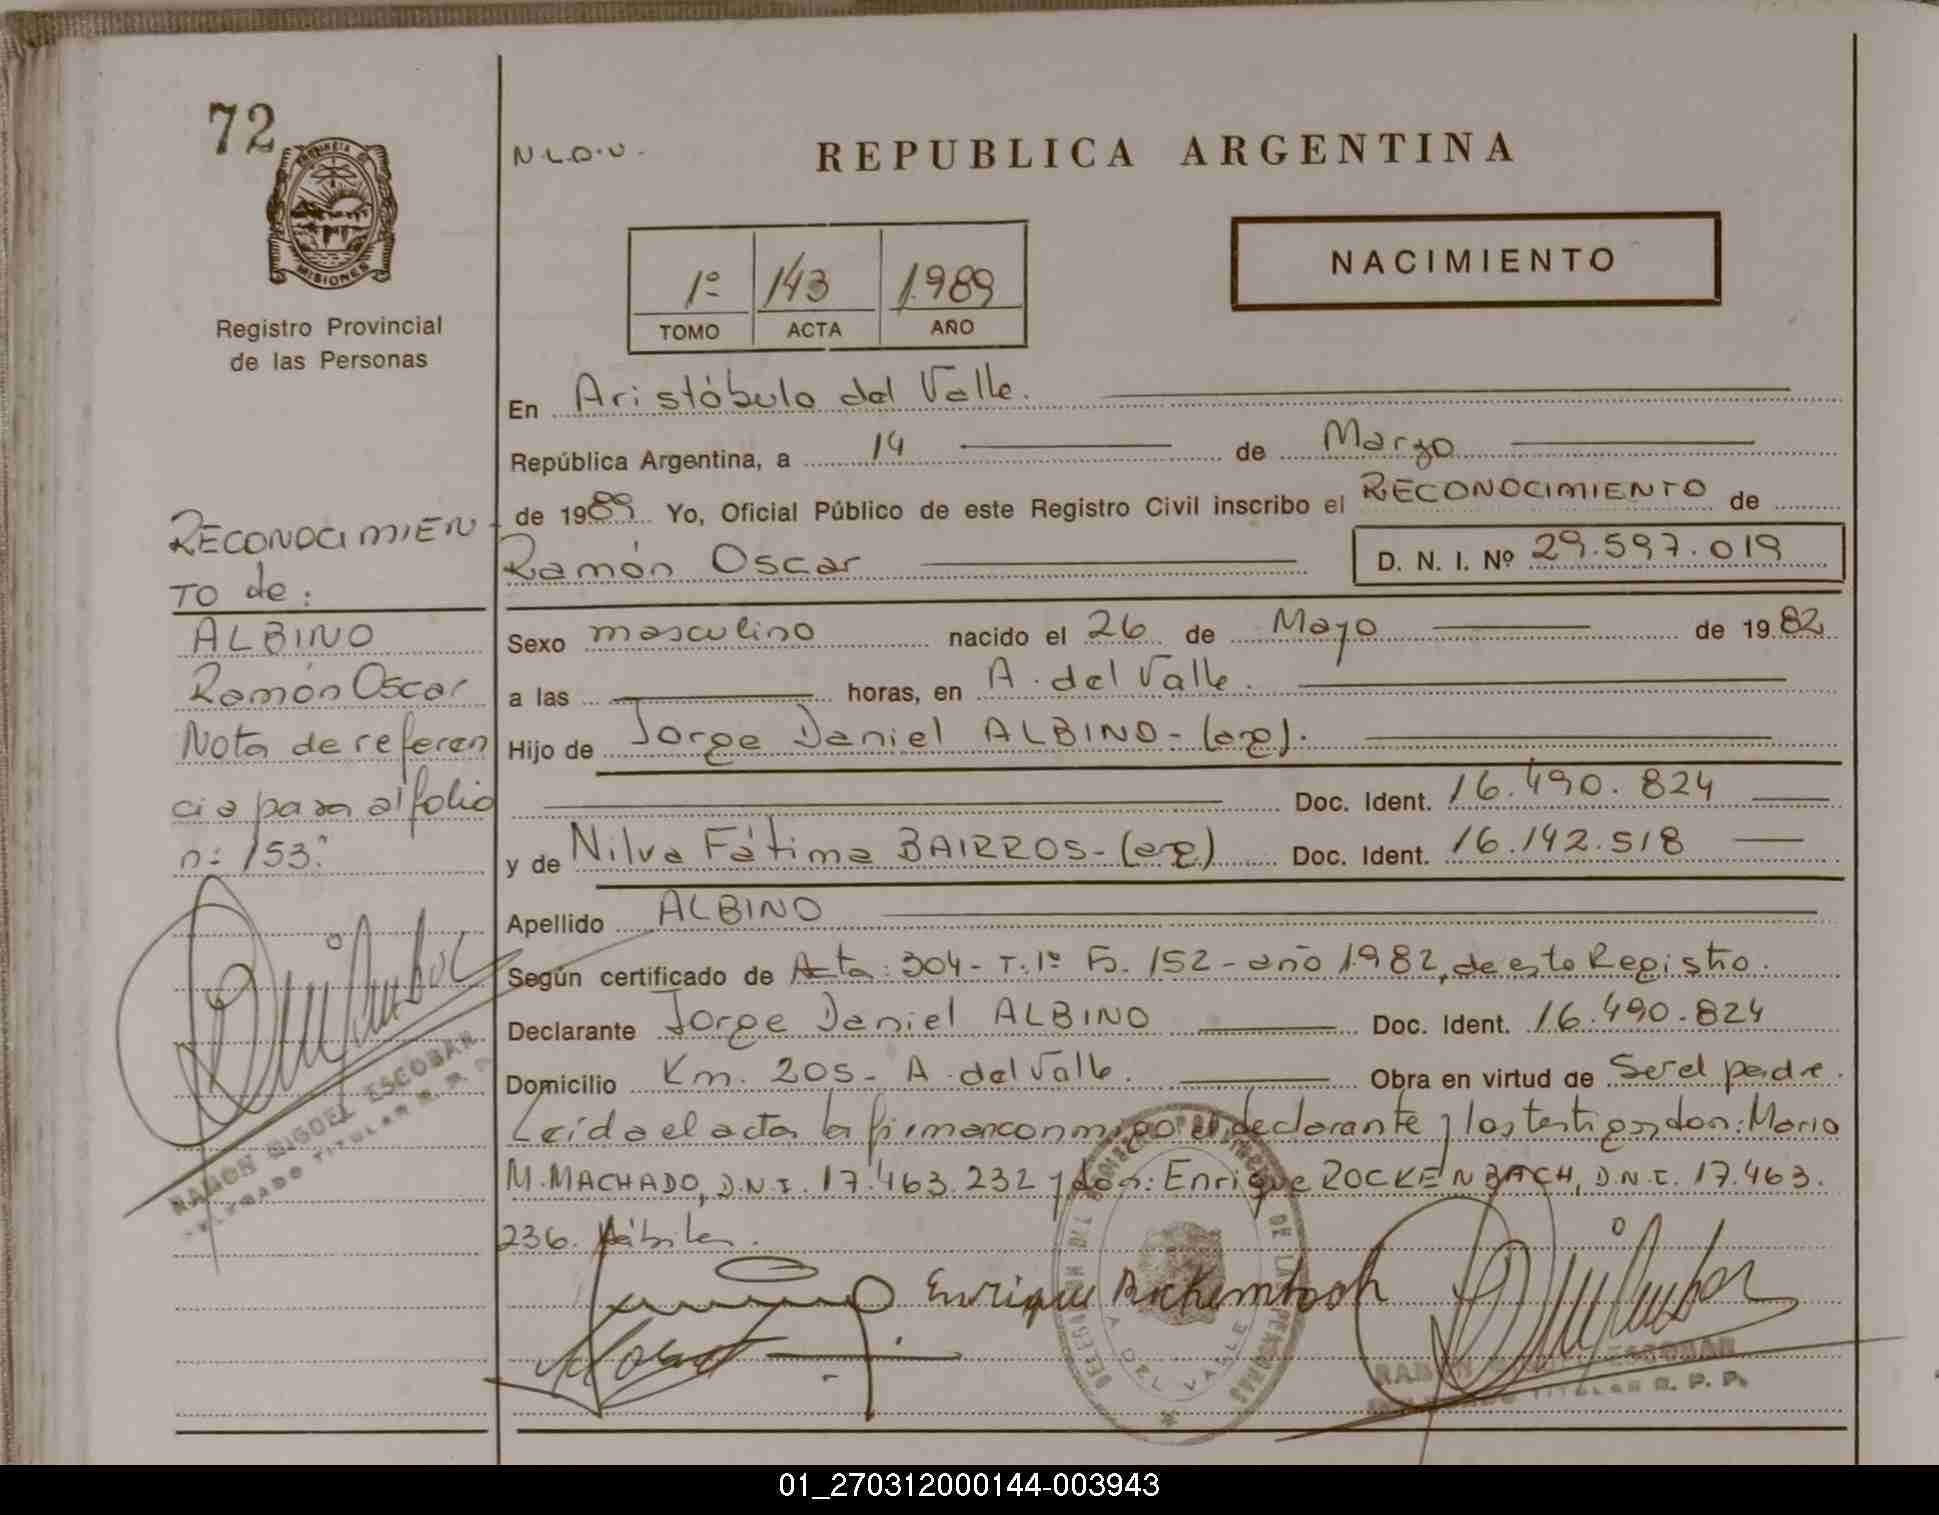 72
PROVINCIA DE
MISIONES
Registro Provincial
de las Personas
RECONOCIMIEN
TO de:
ALBINO
Ramón Oscar
Nota de referen
cia para al folio
nº 153.
RAMON MIGUEL ESCOBAR
DELEGADO TITULAR R. P. P.
N.L.O.V.
REPUBLICA ARGENTINA
NACIMIENTO
1º 143 1989
TOMO ACTA AÑO
En Aristóbulo del Valle.
República Argentina, a 14 de Marzo
de 1989 Yo, Oficial Público de este Registro Civil inscribo el RECONOCIMIENTO de
Ramón Oscar D. N. I. Nº 29.597.019
Sexo masculino nacido el 26 de Mayo de 1982
a las horas, en A. del Valle.
Hijo de Jorge Daniel ALBINO- (arg).
Doc. Ident. 16.490.824
y de Nilva Fátima BAIRROS- (arg) Doc. Ident. 16.142.518
Apellido ALBINO
Según certificado de Acta: 304- T: 1º Fº. 152- año 1982, de este Registro.
Declarante Jorge Daniel ALBINO Doc. Ident. 16.490.824
Domicilio Km. 205- A. del Valle. Obra en virtud de Ser el padre.
Leída el acta la firman conmigo el declarante y los testigos don: Mario
M. MACHADO, D.N.I. 17.463.232 y don: Enrique ROCKENBACH, D.N.I. 17.463.
236. hábiles.
Enrique Rockembach
A. DEL VALLE
RAMON MIGUEL ESCOBAR
DELEGADO TITULAR R. P. P.
01_270312000144-003943